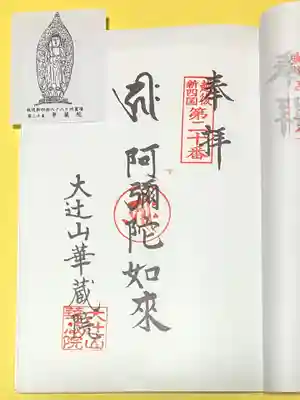 奉拝
越後
新四国
第二十番
阿彌陀如來
大辻山華蔵院
大辻山
華蔵院
第二十番 華蔵院